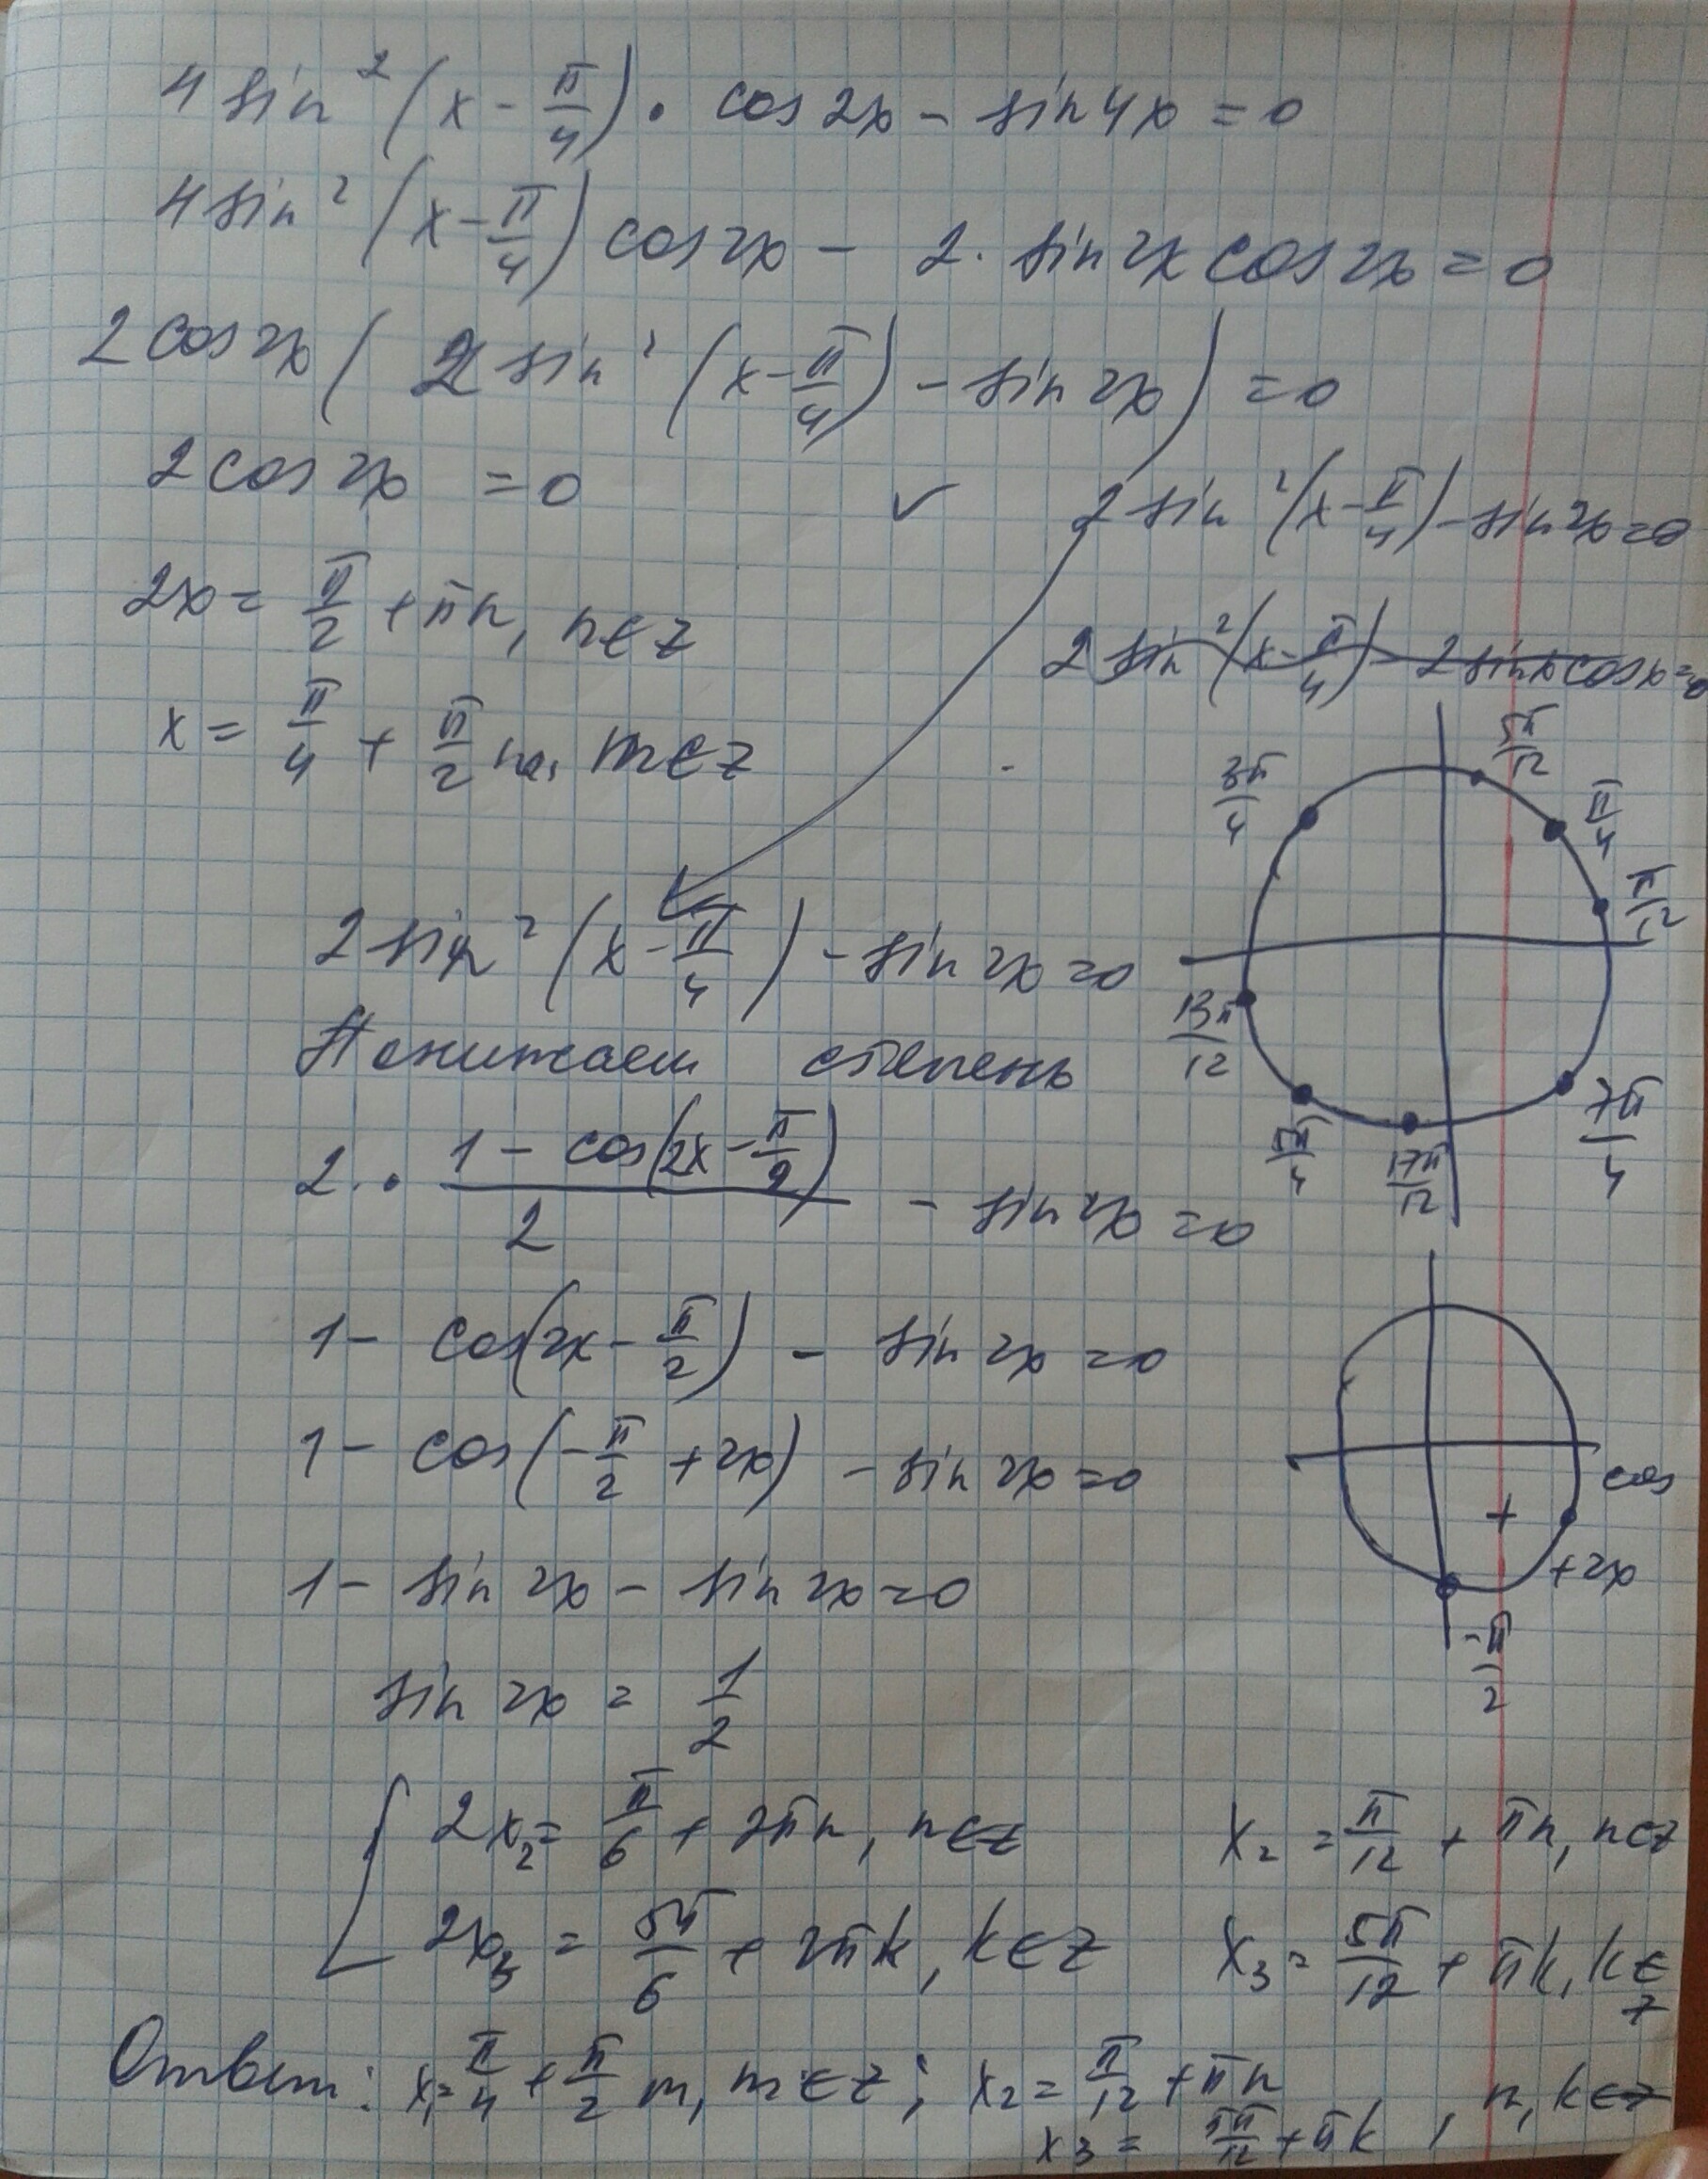 4 sin²(x - π/4) · cos 2x - sin 4x = 0
4 sin²(x - π/4) cos 2x - 2 · sin 2x cos 2x = 0
2 cos 2x (2 sin²(x - π/4) - sin 2x) = 0
2 cos 2x = 0 ∨ 2 sin²(x - π/4) - sin 2x = 0
2x = π/2 + πn, n ∈ Z
2 sin²(x - π/4) - 2 sin x cos x = 0
x = π/4 + π/2 m, m ∈ Z
5π/12
3π/4
π/4
π/12
13π/12
5π/4
17π/12
7π/4
2 sin²(x - π/4) - sin 2x = 0
Понижаем степень
2 · (1 - cos(2x - π/2))/2 - sin 2x = 0
1 - cos(2x - π/2) - sin 2x = 0
1 - cos(-π/2 + 2x) - sin 2x = 0
cos
+
+2x
-π/2
1 - sin 2x - sin 2x = 0
sin 2x = 1/2
[ 2x₂ = π/6 + 2πn, n ∈ Z x₂ = π/12 + πn, n ∈ Z
2x₃ = 5π/6 + 2πk, k ∈ Z x₃ = 5π/12 + πk, k ∈ Z
Ответ: x₁ = π/4 + π/2 m, m ∈ Z; x₂ = π/12 + πn
x₃ = 5π/12 + πk, n, k ∈ Z